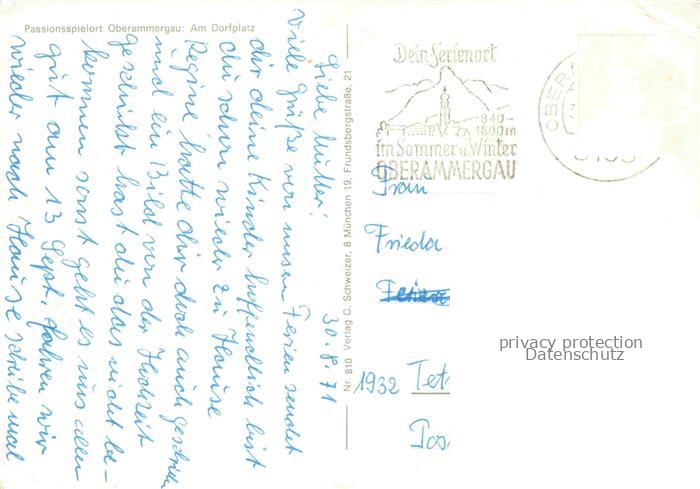 Passionsspielort Oberammergau: Am Dorfplatz
30.8.71
Liebe Mutter!
Viele Grüße von unsern Ferien sendet
dir deine Kinder hoffendlich bist
du schon wieder zu Hause
Regine hatte dir doch auch geschrieben
und ein Bild von der Hochzeit
geschickt hast du das nicht be-
kommen sonst geht es uns allen
gut am 13 Sept. fahren wir
wieder nach Hause schreibe mal
Nr. 810 Verlag C. Schweizer, 8 München 19, Frundsbergstraße, 21
Dein Ferienort
840-
1800m
im Sommer u. Winter
OBERAMMERGAU
OBER
Frau
Frieda
1932 Tet
Pos
privacy protection
Datenschutz